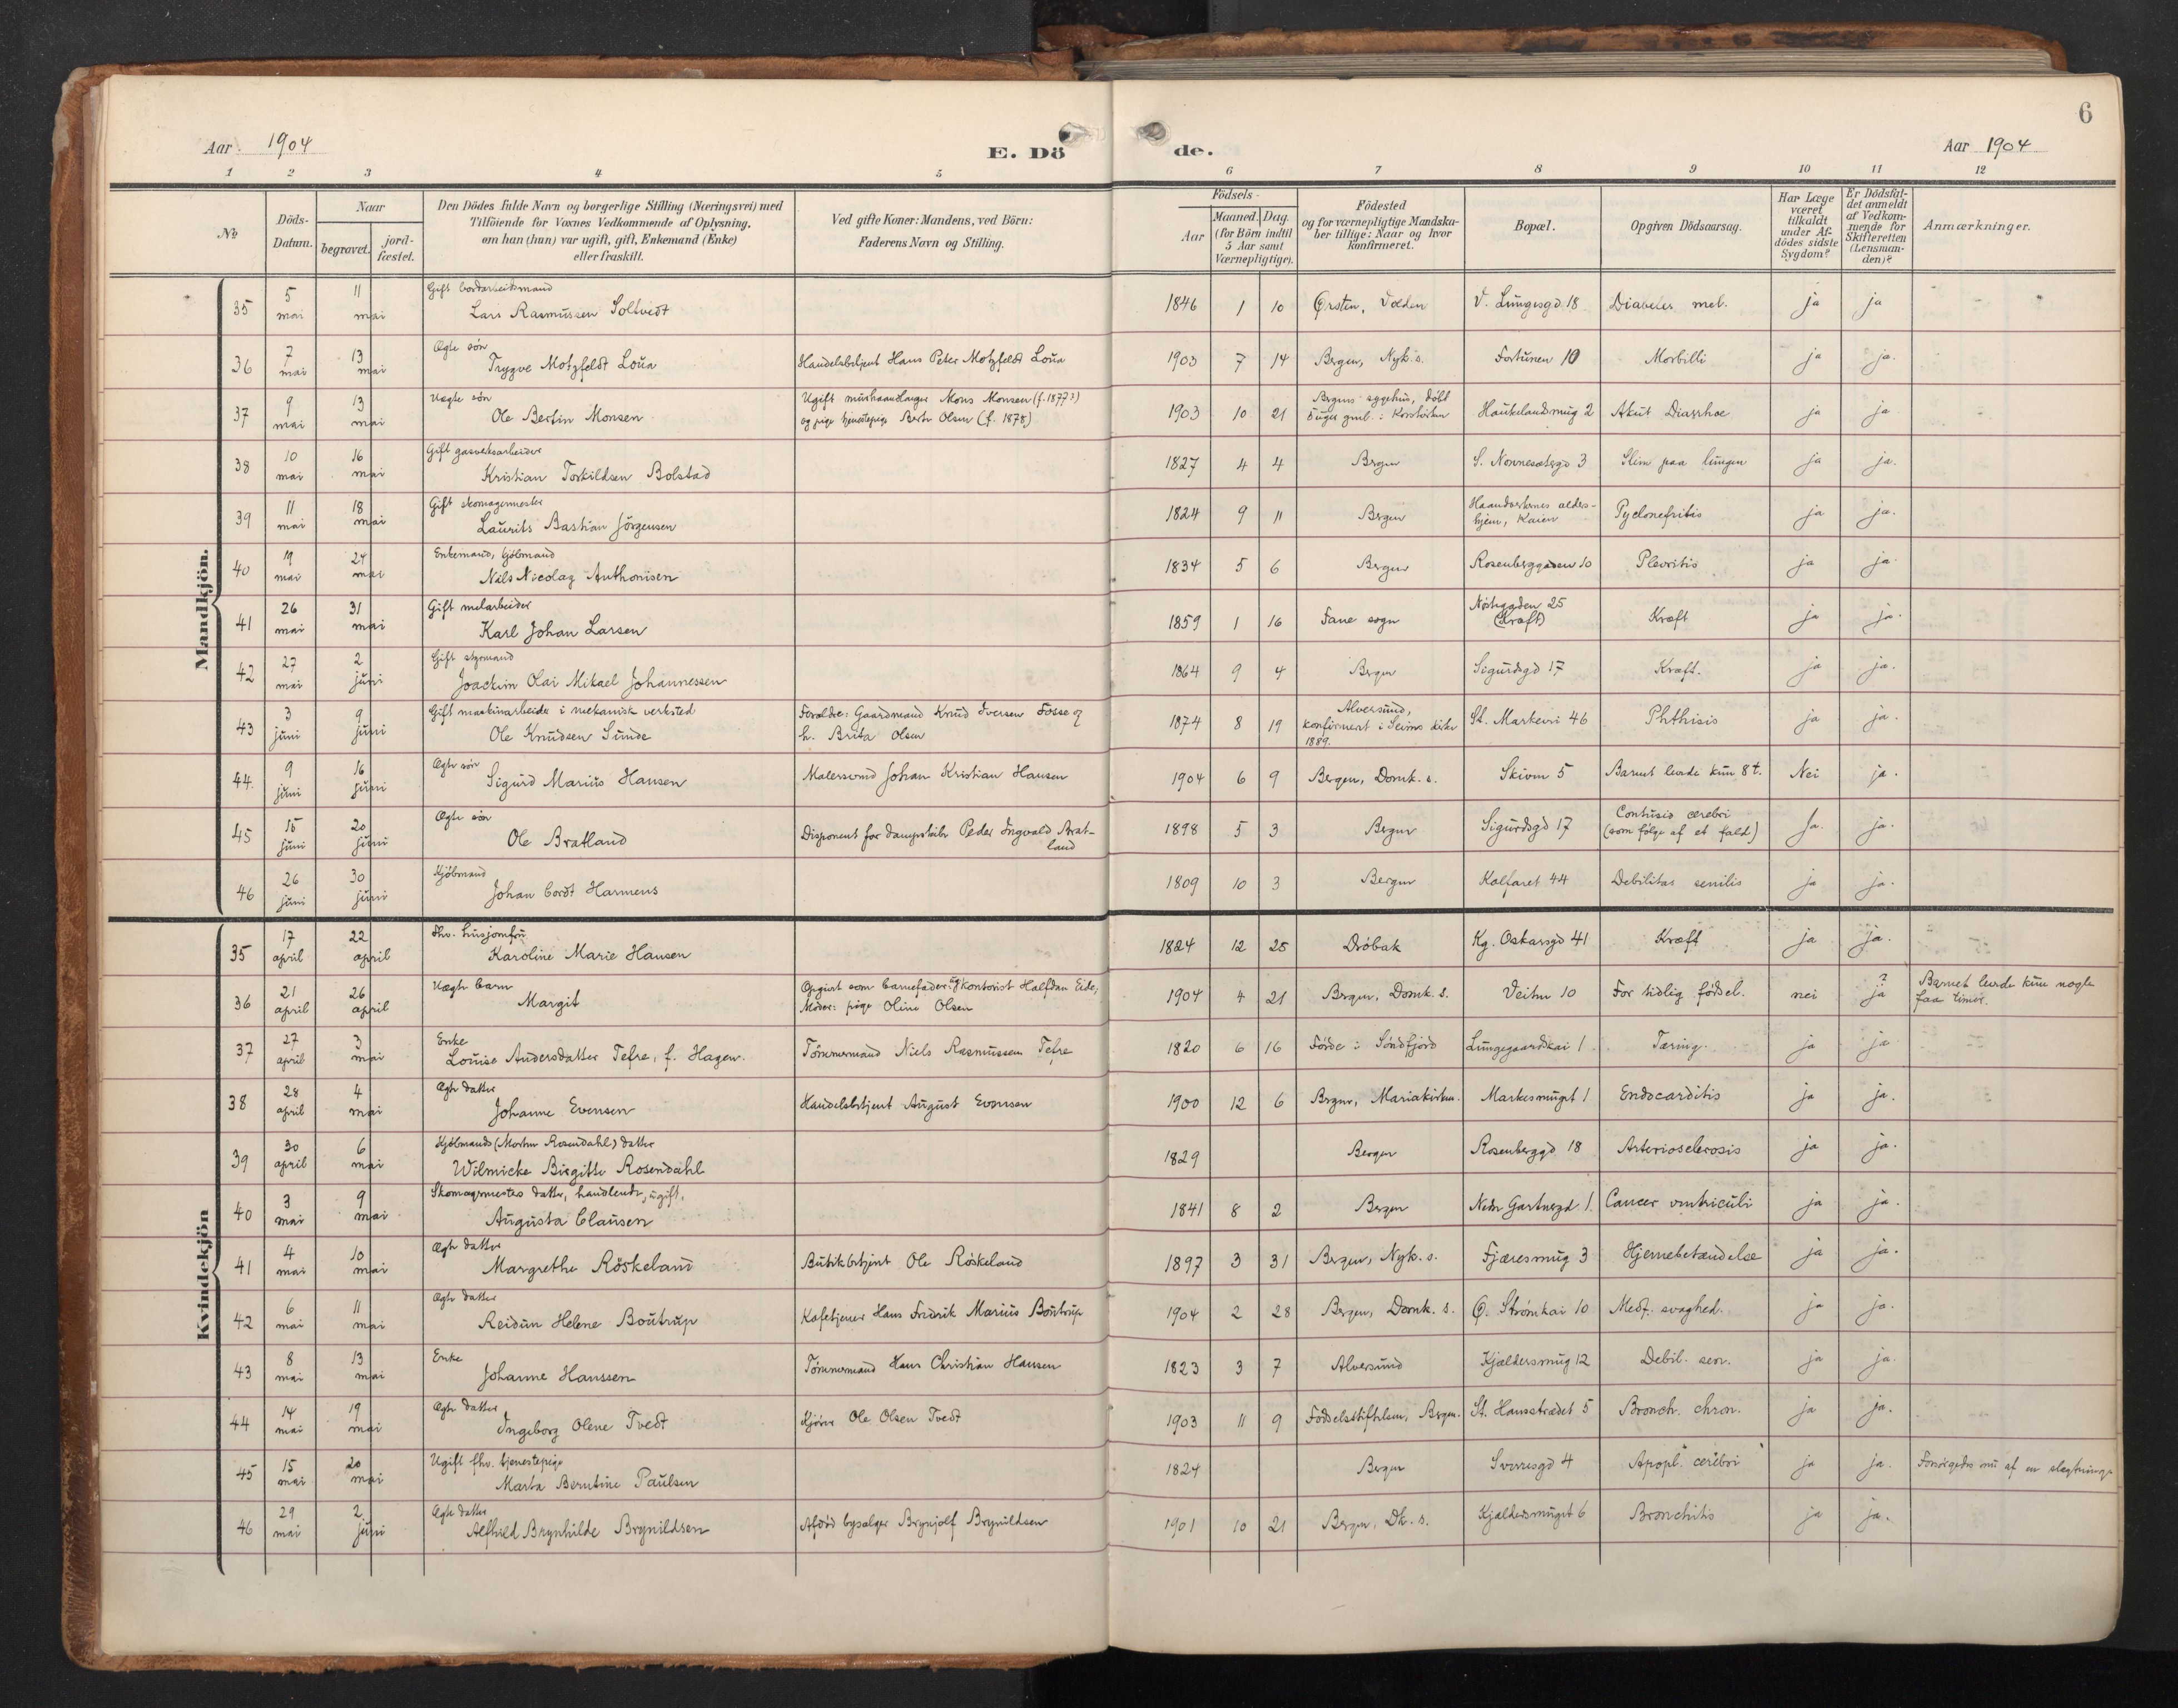 6
Aar 1904
E. Dö
de.
Aar 1904
1 2 3 4 5 6 7 8 9 10 11 12
No
Döds-Datum.
Naar
begravet.
jord-fæstet.
Den Dödes fulde Navn og borgerlige Stilling (Næringsvei) med
Tilföiende for Voxnes Vedkommende af Oplysning,
om han (hun) var ugift, gift, Enkemand (Enke)
eller fraskilt.
Ved gifte Koner: Mandens, ved Börn:
Faderens Navn og Stilling.
Födsels-
Aar
Maaned.
Dag.
(for Börn indtil
5 Aar samt
Værnepligtige).
Födested
og for værnepligtige Mandska-
ber tillige: Naar og hvor
konfirmeret.
Bopæl.
Opgiven Dödsaarsag.
Har Læge
været
tilkaldt
under Af-
dödes sidste
Sygdom?
Er Dödsfal-
det anmeldt
af Vedkom-
mende for
Skifteretten
(Lensman-
den)?
Anmærkninger.
Mandkjön.
35 5 mai 11 mai Gift
Lars Rasmussen Soltvedt 1846 1 10 Ørsten, Volden V. Lungesgd. 18 Diabetes mel. ja ja
36 7 mai 13 mai Ægte søn
Trygve Motzfeldt Loua Handelsbetjent Hans Peter Motzfeldt Loua 1903 7 14 Bergen, Nyk. s. Fortunen 10 Morbilli ja ja.
37 9 mai 13 mai Uægte søn
Ole Bertin Monsen Ugift Mons Monsen (f. 1877?)
og pige tjenestepige Berte Olsen (f. 1878) 1903 10 21 Bergens sygehus, døbt
5 uger gml. i Korskirken Haukelandsmug 2 Akut Diarrhoe ja ja
38 10 mai 16 mai Gift gasverksarbeider
Kristian Torkildsen Bolstad 1827 4 4 Bergen S. Nonnesætergd 3 Slim paa lungen ja ja.
39 11 mai 18 mai Gift skomagermester
Laurits Bastian Jörgensen 1824 9 11 Bergen Haandverkernes alders-
hjem, Kaien Pyelonefritis ja ja.
40 19 mai 24 mai Enkemand, kjöbmand
Nils Nicolay Anthonisen 1834 5 6 Bergen Rosenberggaden 10 Plevritis ja ja.
41 26 mai 31 mai Gift melarbeider
Karl Johan Larsen 1859 1 16 Fane sogn Nöstegaden 25
(Kræft) Kræft ja ja.
42 27 mai 2 juni Gift styrmand
Joackim Olai Mikael Johannessen 1864 9 4 Bergen Sigurdsgd 17 Kræft. ja ja.
43 3 juni 9 juni Gift maskinarbeider i mekanisk verksted
Ole Knudsen Sunde Forældre: Gaardmand Knud Iversen Fosse og
h. Brita Olsen 1874 8 19 Alversund,
konfirmert i Seims kirke
1889. St. Markevei 46 Phthisis ja ja.
44. 9 juni 16 juni Ægte søn
Sigurd Marius Hansen Malersvend Johan Kristian Hansen 1904 6 9 Bergen, Domk. s. Skiven 5 Barnet levde kun 8 t. Nei ja.
45 15 juni 20 juni Ægte søn
Ole Bratland Disponent for dampskibe Peder Ingvald Brat-
land 1898 5 3 Bergen Sigurdsgd 17 Contusio cerebri
(som følge af et fald) Ja. ja.
46 26 juni 30 juni Kjöbmand
Johan Cordt Harmens 1809 10 3 Bergen Kalfaret 44 Debilitas senilis ja ja.
Kvindekjön
35 17 april 22 april Fhv. husjomfru
Karoline Marie Hansen 1824 12 25 Dröbak Kg. Oskarsgd 41 Kræft ja ja.
36 21 april 26 april Uægte barn
Margit Opgivet som barnefader: ug. kontorist Halfdan Eide,
Moder: pige Oline Olsen 1904 4 21 Bergen, Domk. s. Veiten 10 For tidlig födsel. nei ?
ja Barnet levde kun nogle
faa timer.
37 27 april 3 mai Enke
Louise Andersdatter Tefre, f. Hagen. Tömmermand Niels Rasmussen Tefre 1820 6 16 Förde i Söndfjord Lungegaardskai 1 Tæring. ja ja
38 28 april 4 mai Ægte datter
Johanne Evensen Handelsbetjent August Evensen 1900 12 6 Bergen, Mariakirken. Markesmuget 1 Endocarditis ja ja.
39 30 april 6 mai Kjöbmands (Morten Rosendahl) datter
Wilmicke Birgitte Rosendahl 1829 Bergen Rosenberggd 18 Arteriosclerosis ja ja.
40 3 mai 9 mai Skomagermesters datter, handlende, ugift,
Augusta Clausen 1841 8 2 Bergen Nedre Gartnergd. 1. Cancer ventriculi ja ja.
41 4 mai 10 mai Ægte datter
Margrethe Röskeland Butikbetjent Ole Röskeland 1897 3 31 Bergen, Nyk. s. Fjæresmug 3 Hjernebetændelse ja ja.
42 6 mai 11 mai Ægte datter
Reidun Helene Boutrup Kafetjener Hans Fredrik Marius Boutrup 1904 2 28 Bergen, Domk. s. Ø. Strömkai 10 Medf. svaghed. ja ja.
43 8 mai 13 mai Enke
Johanne Hanssen Tömmermand Hans Christian Hansen 1823 3 7 Alversund Kjældersmug 12 Debil. sen. ja ja
44 14 mai 19 mai Ægte datter
Ingeborg Olene Tvedt Kjörer Ole Olsen Tvedt 1903 11 9 Födselsstiftelsen, Bergen. St. Hansstrædet 5 Bronch. chron. ja ja.
45 15 mai 20 mai Ugift fhv. tjenestepige
Marta Berntine Paulsen 1824 Bergen Sverresgd 4 Apopl. cerebri ja ja. Forsörgedes nu af en slægtning
46 29 mai 2 juni Ægte datter
Alfhild Brynhilde Brynildsen Afdöd bysælger Brynjolf Brynildsen 1901 10 21 Bergen, Dk. s. Kjældersmuget 6 Bronchitis ja ja.